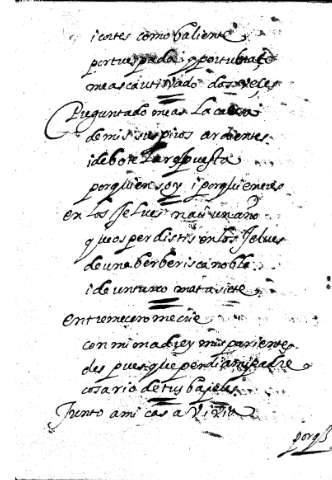 i cortes como baliente
por tu espada y por tu trato
me as cautiuado dos veses
Preguntado me as La causa
de mis suspiros ardientes
i debote La rrespuesta
por quien soy i por quien eres
en Los Jelues naci un año
que os perdistis en los Jelues
de una berberisca noble
i de un turco mata siete
en tremecen me crie
con mi madre y mis parientes
des pues que perdi a mi padre
cosario de tres bajeles
Junto a mi casa viuia
porq̃